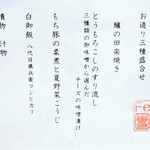 お造り三種盛合せ
鱧の田楽焼き
とうもろこしのすり流し
三種類の御味噌から選んだ
チーズの味噌漬け
もち豚の柔煮と夏野菜こうじ
白御飯 八代目儀兵衛コシヒカリ
漬物 汁物
re